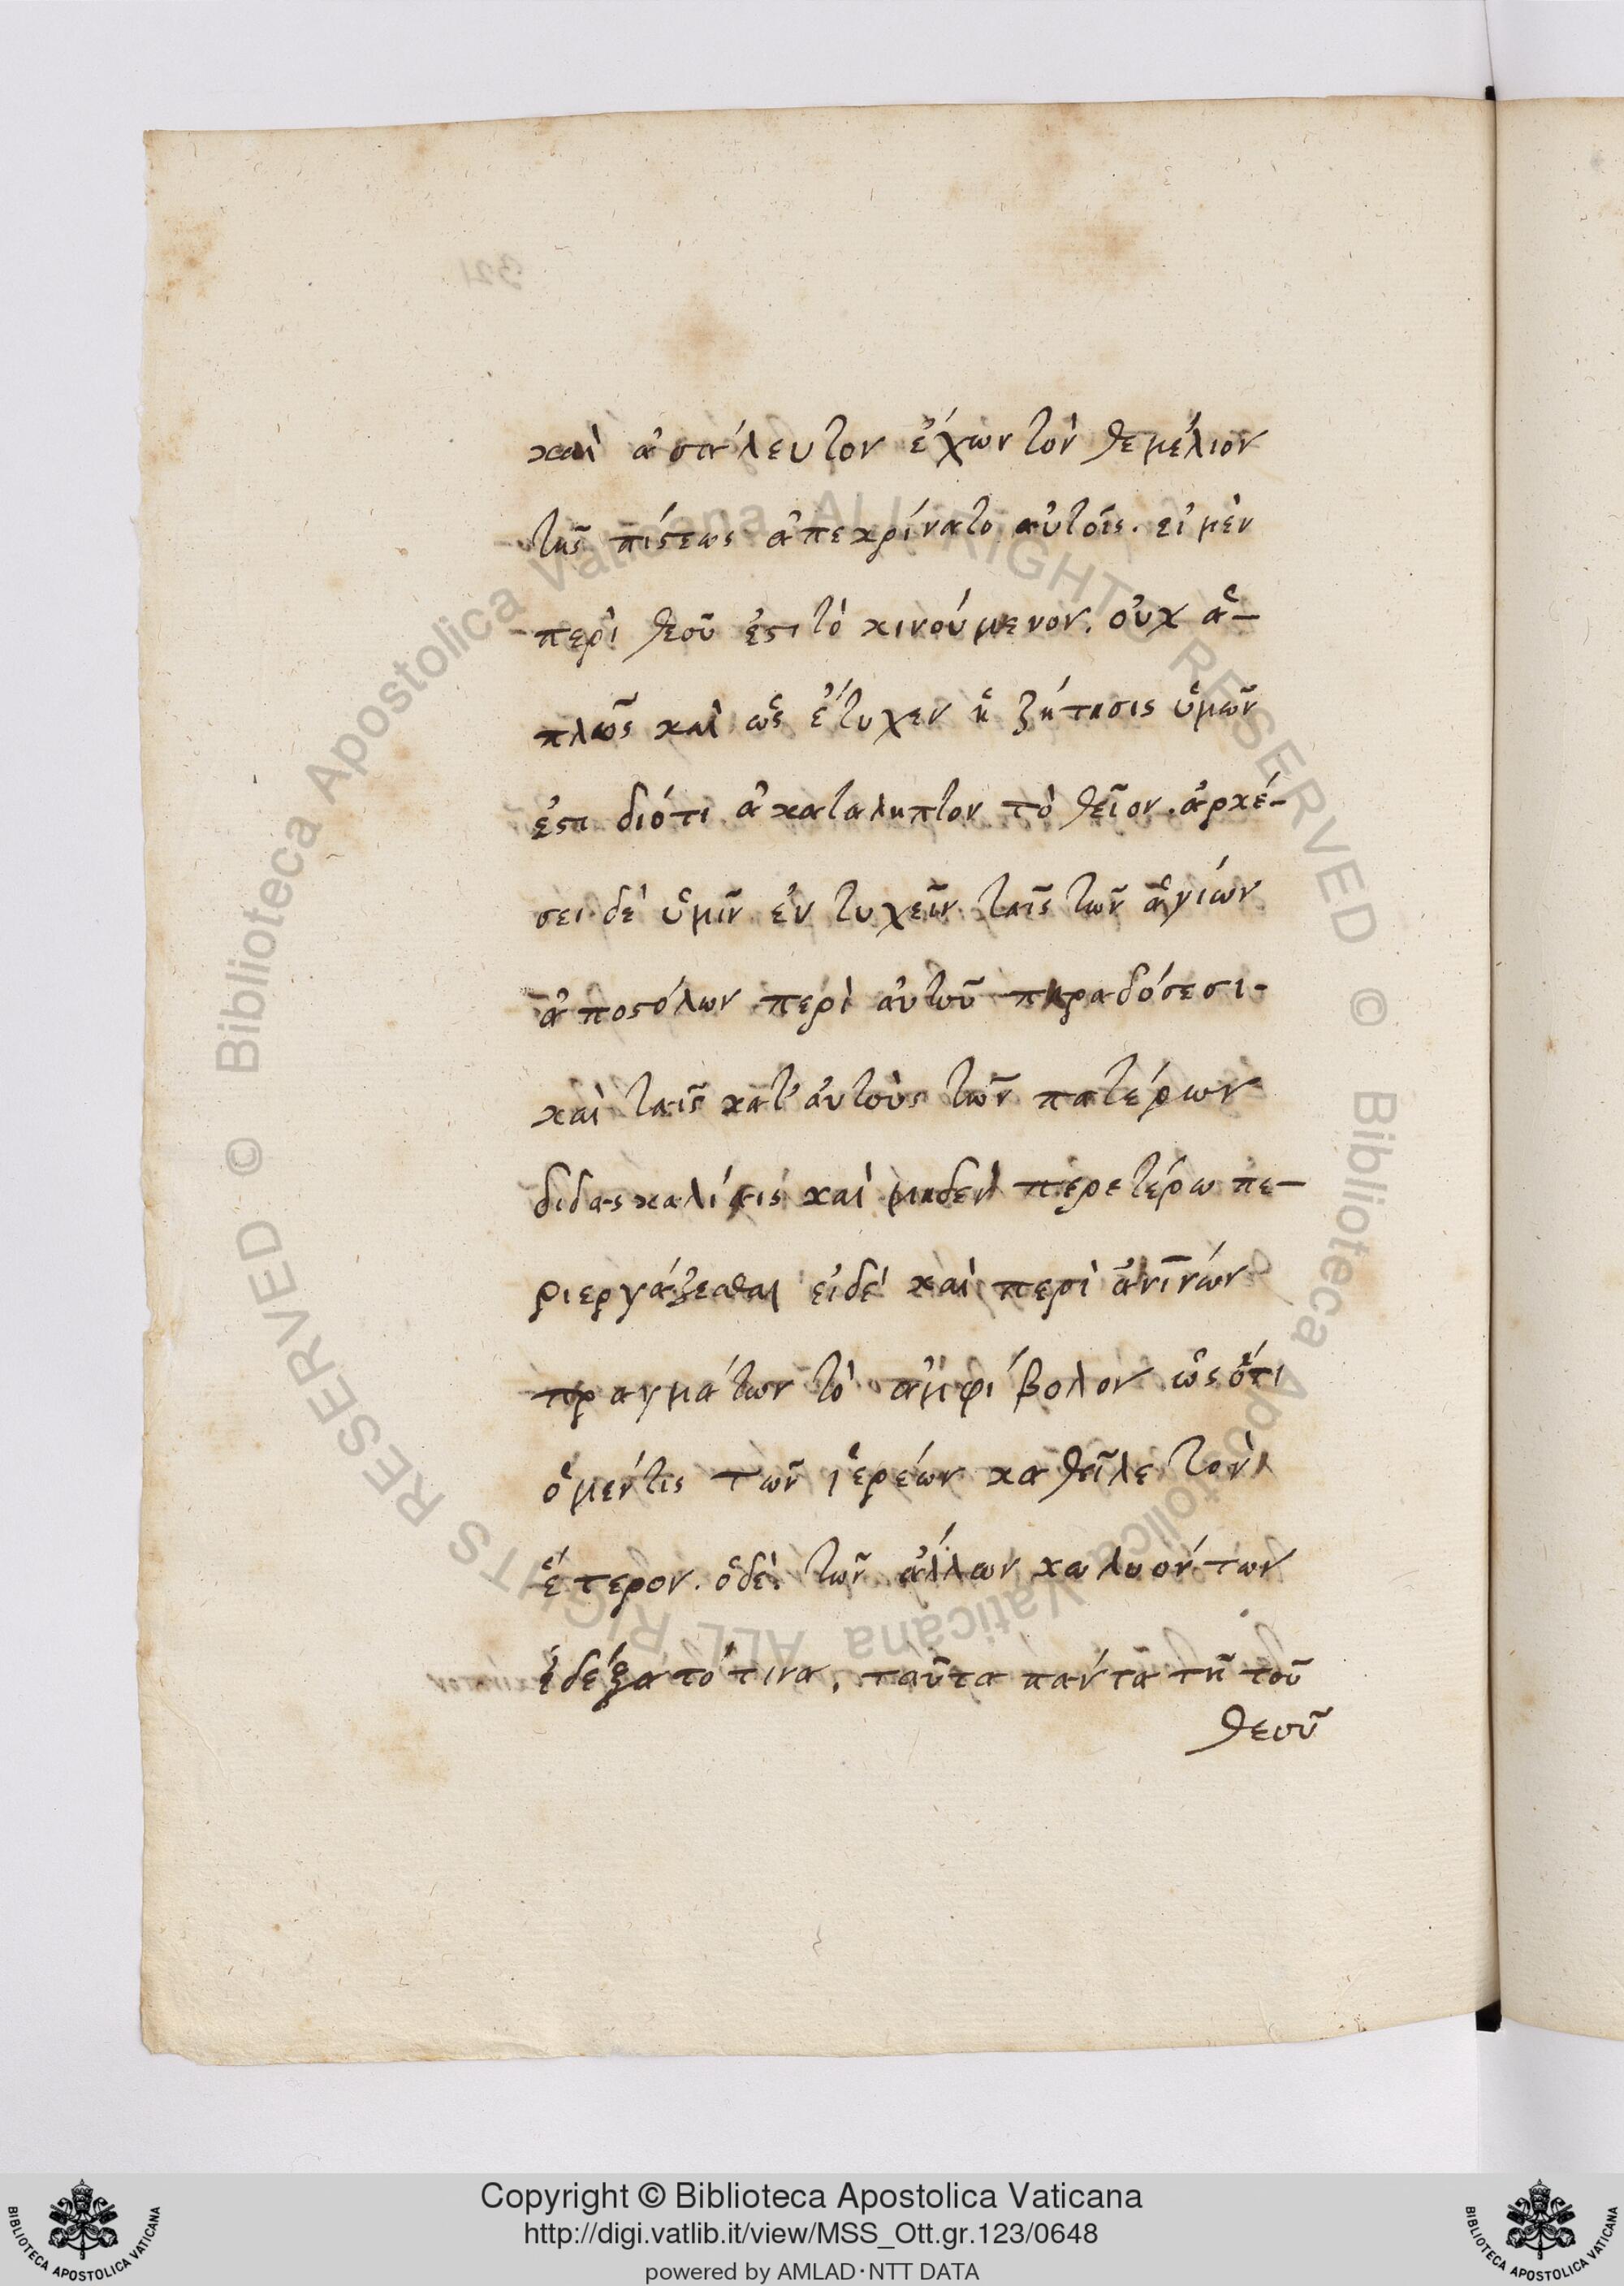 καὶ ἀσάλευτον ἔχων τὸν θεμέλιον
τῆς πίστεως ἀπεκρίνατο αὐτοῖς. εἰ μὲν
περὶ θεοῦ ἐστι τὸ κινούμενον, οὐχ ἁ-
πλῶς καὶ ὡς ἔτυχεν ἡ ζήτησις ὑμῶν
ἐστι διότι ἀκατάληπτον τὸ θεῖον. ἀρκέ-
σει δὲ ὑμῖν ἐντυχεῖν ταῖς τῶν ἁγίων
ἀποστόλων περὶ αὐτοῦ παραδόσεσι.
καὶ ταῖς κατ' αὐτοὺς τῶν πατέρων
διδασκαλίαις καὶ μηδὲν περετέρω πε-
ριεργάζεσθαι εἰ δὲ καὶ περὶ ἀνινῶν
πραγμάτων τὸ ἀμφίβολον ὡς ὅτι
ὁ μέν τις τῶν ἱερέων καθεῖλε τὸν
ἕτερον. ὁ δὲ τῶν ἄλλων κωλυόντων
ἐδέξατό τινα, ταῦτα πάντα τῆ τοῦ
θεοῦ
321
Biblioteca Apostolica Vaticana ALL RIGHTS RESERVED © Biblioteca Apostolica Vaticana ALL RIGHTS RESERVED ©
Copyright © Biblioteca Apostolica Vaticana
http://digi.vatlib.it/view/MSS_Ott.gr.123/0648
powered by AMLAD·NTT DATA
BIBLIOTECA APOSTOLICA VATICANA
BIBLIOTECA APOSTOLICA VATICANA